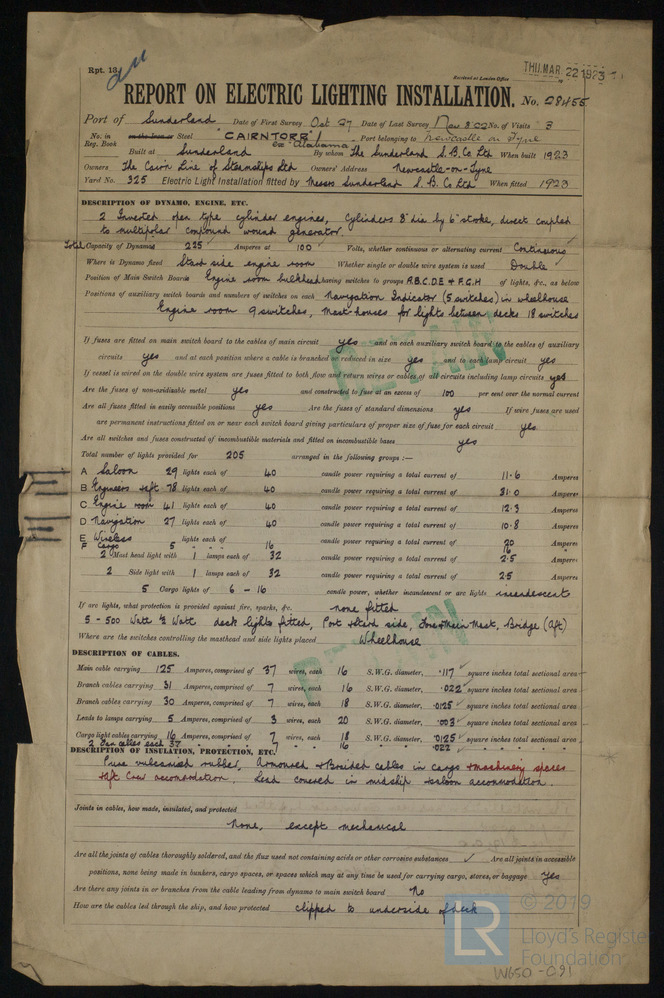 Rpt. 13.
Received at London Office
THU. MAR. 22 1923
REPORT ON ELECTRIC LIGHTING INSTALLATION. No. 28455
Port of Sunderland Date of First Survey Oct 27 Date of Last Survey No. of Visits 3
No. in Reg. Book on the Iron or Steel "CAIRNTORR" ex Alabama Port belonging to Newcastle on Tyne
Built at Sunderland By whom The Sunderland S.B. Co Ltd When built 1923
Owners The Cairn Line of Steamships Ltd Owners' Address Newcastle-on-Tyne
Yard No. 325 Electric Light Installation fitted by Messrs Sunderland S.B. Co Ltd When fitted 1923
DESCRIPTION OF DYNAMO, ENGINE, ETC.
2 Inverted open type cylinder engines, Cylinders 8" dia by 6" stroke, direct coupled
to multipolar compound wound generator.
Total Capacity of Dynamos 225 Amperes at 100 Volts, whether continuous or alternating current Continuous
Where is Dynamo fixed Starb side engine room Whether single or double wire system is used Double
Position of Main Switch Board Engine room bulkhead having switches to groups A.B.C.D.E & F.G.H of lights, &c., as below
Positions of auxiliary switch boards and numbers of switches on each Navigation Indicator (5 switches) in wheelhouse
Engine room 9 switches, Mast houses for lights between decks 18 switches
If fuses are fitted on main switch board to the cables of main circuit yes and on each auxiliary switch board to the cables of auxiliary
circuits yes and at each position where a cable is branched or reduced in size yes and to each lamp circuit yes
If vessel is wired on the double wire system are fuses fitted to both flow and return wires or cables of all circuits including lamp circuits yes
Are the fuses of non-oxidizable metal yes and constructed to fuse at an excess of 100 per cent over the normal current
Are all fuses fitted in easily accessible positions yes Are the fuses of standard dimensions yes If wire fuses are used
are permanent instructions fitted on or near each switch board giving particulars of proper size of fuse for each circuit yes
Are all switches and fuses constructed of incombustible materials and fitted on incombustible bases yes
Total number of lights provided for 205 arranged in the following groups :—
A Saloon 29 lights each of 40 candle power requiring a total current of 11.6 Amperes
B Engineers & aft 78 lights each of 40 candle power requiring a total current of 31.0 Amperes
C Engine room 41 lights each of 40 candle power requiring a total current of 12.3 Amperes
D Navigation 27 lights each of 40 candle power requiring a total current of 10.8 Amperes
E Wireless lights each of candle power requiring a total current of 20 Amperes
F Cargo 5 16 16 "
2 Mast head light with 1 lamps each of 32 candle power requiring a total current of 2.5 Amperes
2 Side light with 1 lamps each of 32 candle power requiring a total current of 2.5 Amperes
5 Cargo lights of 6 - 16 candle power, whether incandescent or arc lights incandescent
If arc lights, what protection is provided against fire, sparks, &c. none fitted
5 - 500 Watt ½ Watt deck lights fitted, Port & Starb side, Fore & Main Mast, Bridge (aft)
Where are the switches controlling the masthead and side lights placed Wheelhouse
RETAIN
RETAIN
DESCRIPTION OF CABLES.
Main cable carrying 125 Amperes, comprised of 37 wires, each 16 S.W.G. diameter, .117 square inches total sectional area
Branch cables carrying 31 Amperes, comprised of 7 wires, each 16 S.W.G. diameter, .022 square inches total sectional area
Branch cables carrying 30 Amperes, comprised of 7 wires, each 18 S.W.G. diameter, .0125 square inches total sectional area
Leads to lamps carrying 5 Amperes, comprised of 3 wires, each 20 S.W.G. diameter, .003 square inches total sectional area
Cargo light cables carrying 16 Amperes, comprised of 7 wires, each 18 S.W.G. diameter, .0125 square inches total sectional area
2 cables each 37 " 7 " 16 " .022 "
DESCRIPTION OF INSULATION, PROTECTION, ETC.
Pure vulcanised rubber, Armoured & Braided cables in cargo & machinery spaces
& Aft Crew accomodation. Lead covered in midship & saloon accomodation.
Joints in cables, how made, insulated, and protected
None, except mechanical
Are all the joints of cables thoroughly soldered, and the flux used not containing acids or other corrosive substances ✓ Are all joints in accessible
positions, none being made in bunkers, cargo spaces, or spaces which may at any time be used for carrying cargo, stores, or baggage yes
Are there any joints in or branches from the cable leading from dynamo to main switch board No
How are the cables led through the ship, and how protected clipped to underside of deck
© 2019
LR Lloyd's Register
Foundation
W650-091